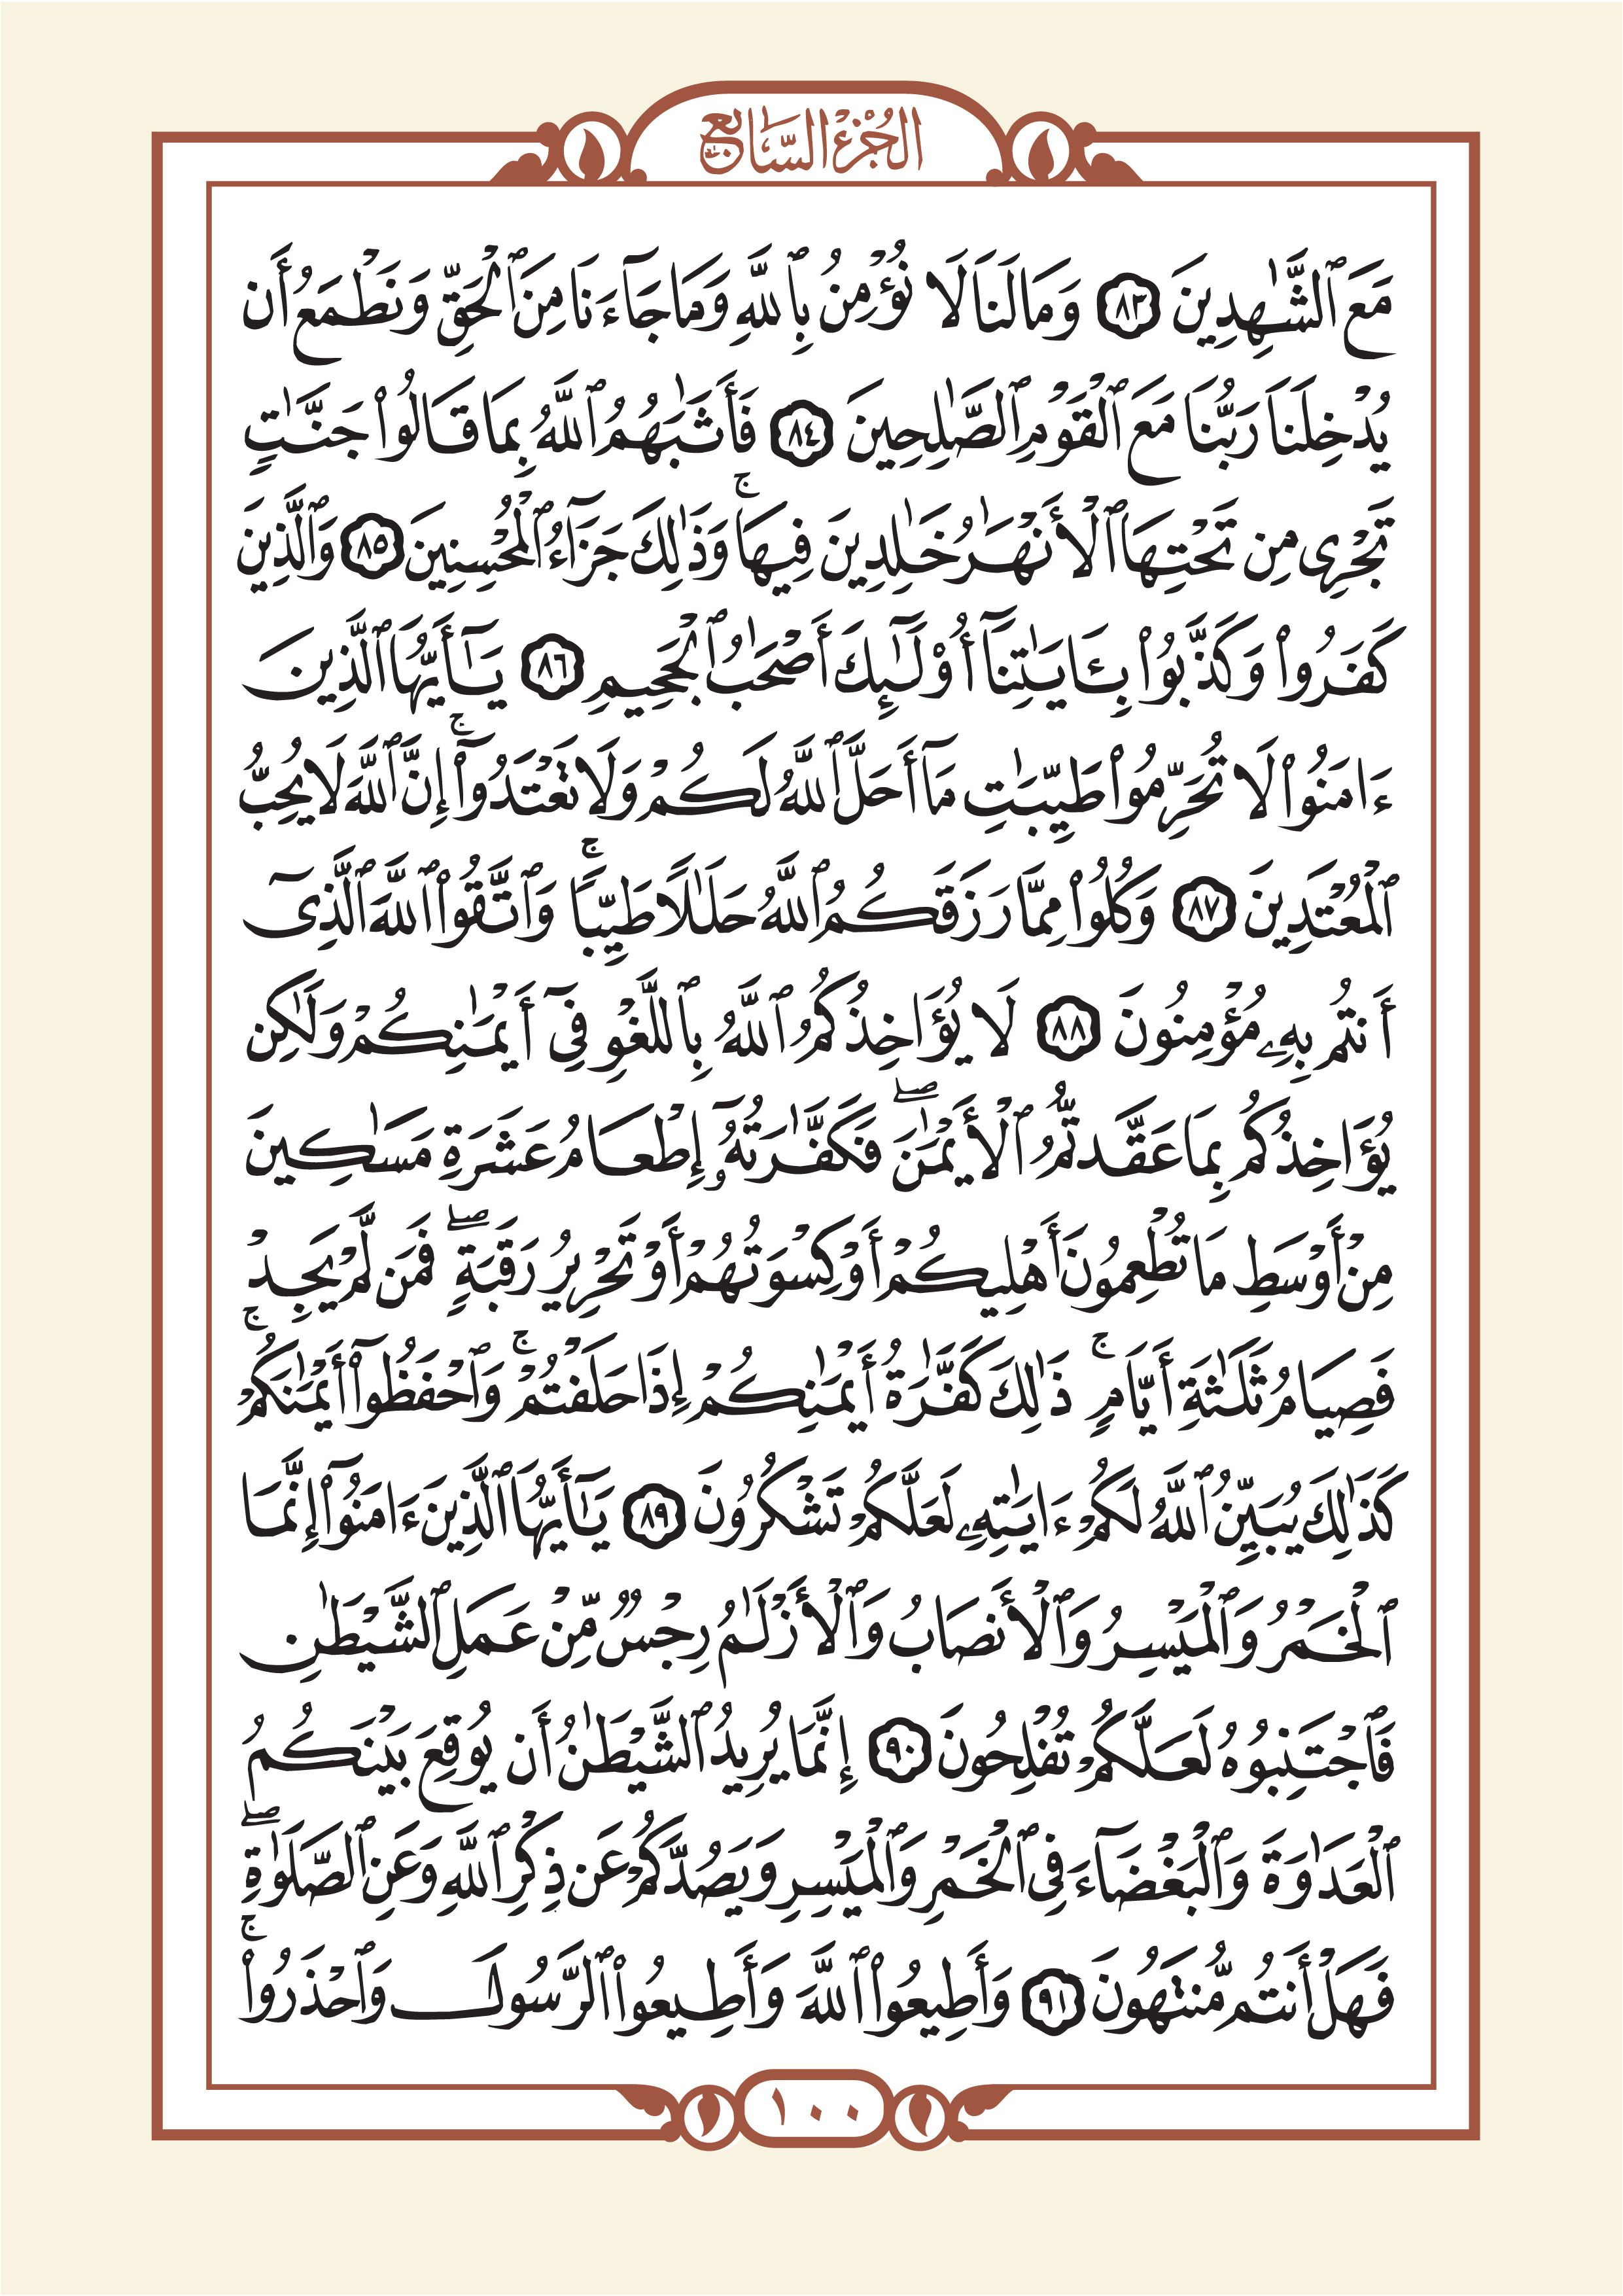 الجُزْءُ السَّابِعُ
مَعَ ٱلشَّٰهِدِينَ ٨٣ وَمَا لَنَا لَا نُؤْمِنُ بِٱللَّهِ وَمَا جَآءَنَا مِنَ ٱلْحَقِّ وَنَطْمَعُ أَن
يُدْخِلَنَا رَبُّنَا مَعَ ٱلْقَوْمِ ٱلصَّٰلِحِينَ ٨٤ فَأَثَٰبَهُمُ ٱللَّهُ بِمَا قَالُوا۟ جَنَّٰتٍ
تَجْرِى مِن تَحْتِهَا ٱلْأَنْهَٰرُ خَٰلِدِينَ فِيهَا ۚ وَذَٰلِكَ جَزَآءُ ٱلْمُحْسِنِينَ ٨٥ وَٱلَّذِينَ
كَفَرُوا۟ وَكَذَّبُوا۟ بِـَٔايَٰتِنَآ أُو۟لَٰٓئِكَ أَصْحَٰبُ ٱلْجَحِيمِ ٨٦ يَٰٓأَيُّهَا ٱلَّذِينَ
ءَامَنُوا۟ لَا تُحَرِّمُوا۟ طَيِّبَٰتِ مَآ أَحَلَّ ٱللَّهُ لَكُمْ وَلَا تَعْتَدُوٓا۟ ۚ إِنَّ ٱللَّهَ لَا يُحِبُّ
ٱلْمُعْتَدِينَ ٨٧ وَكُلُوا۟ مِمَّا رَزَقَكُمُ ٱللَّهُ حَلَٰلًا طَيِّبًا ۚ وَٱتَّقُوا۟ ٱللَّهَ ٱلَّذِىٓ
أَنتُم بِهِۦ مُؤْمِنُونَ ٨٨ لَا يُؤَاخِذُكُمُ ٱللَّهُ بِٱللَّغْوِ فِىٓ أَيْمَٰنِكُمْ وَلَٰكِن
يُؤَاخِذُكُم بِمَا عَقَّدتُّمُ ٱلْأَيْمَٰنَ ۖ فَكَفَّٰرَتُهُۥٓ إِطْعَامُ عَشَرَةِ مَسَٰكِينَ
مِنْ أَوْسَطِ مَا تُطْعِمُونَ أَهْلِيكُمْ أَوْ كِسْوَتُهُمْ أَوْ تَحْرِيرُ رَقَبَةٍ ۖ فَمَن لَّمْ يَجِدْ
فَصِيَامُ ثَلَٰثَةِ أَيَّامٍ ۚ ذَٰلِكَ كَفَّٰرَةُ أَيْمَٰنِكُمْ إِذَا حَلَفْتُمْ ۚ وَٱحْفَظُوٓا۟ أَيْمَٰنَكُمْ ۚ
كَذَٰلِكَ يُبَيِّنُ ٱللَّهُ لَكُمْ ءَايَٰتِهِۦ لَعَلَّكُمْ تَشْكُرُونَ ٨٩ يَٰٓأَيُّهَا ٱلَّذِينَ ءَامَنُوٓا۟ إِنَّمَا
ٱلْخَمْرُ وَٱلْمَيْسِرُ وَٱلْأَنصَابُ وَٱلْأَزْلَٰمُ رِجْسٌ مِّنْ عَمَلِ ٱلشَّيْطَٰنِ
فَٱجْتَنِبُوهُ لَعَلَّكُمْ تُفْلِحُونَ ٩٠ إِنَّمَا يُرِيدُ ٱلشَّيْطَٰنُ أَن يُوقِعَ بَيْنَكُمُ
ٱلْعَدَٰوَةَ وَٱلْبَغْضَآءَ فِى ٱلْخَمْرِ وَٱلْمَيْسِرِ وَيَصُدَّكُمْ عَن ذِكْرِ ٱللَّهِ وَعَنِ ٱلصَّلَوٰةِ ۖ
فَهَلْ أَنتُم مُّنتَهُونَ ٩١ وَأَطِيعُوا۟ ٱللَّهَ وَأَطِيعُوا۟ ٱلرَّسُولَ وَٱحْذَرُوا۟ ۚ
١٠٠